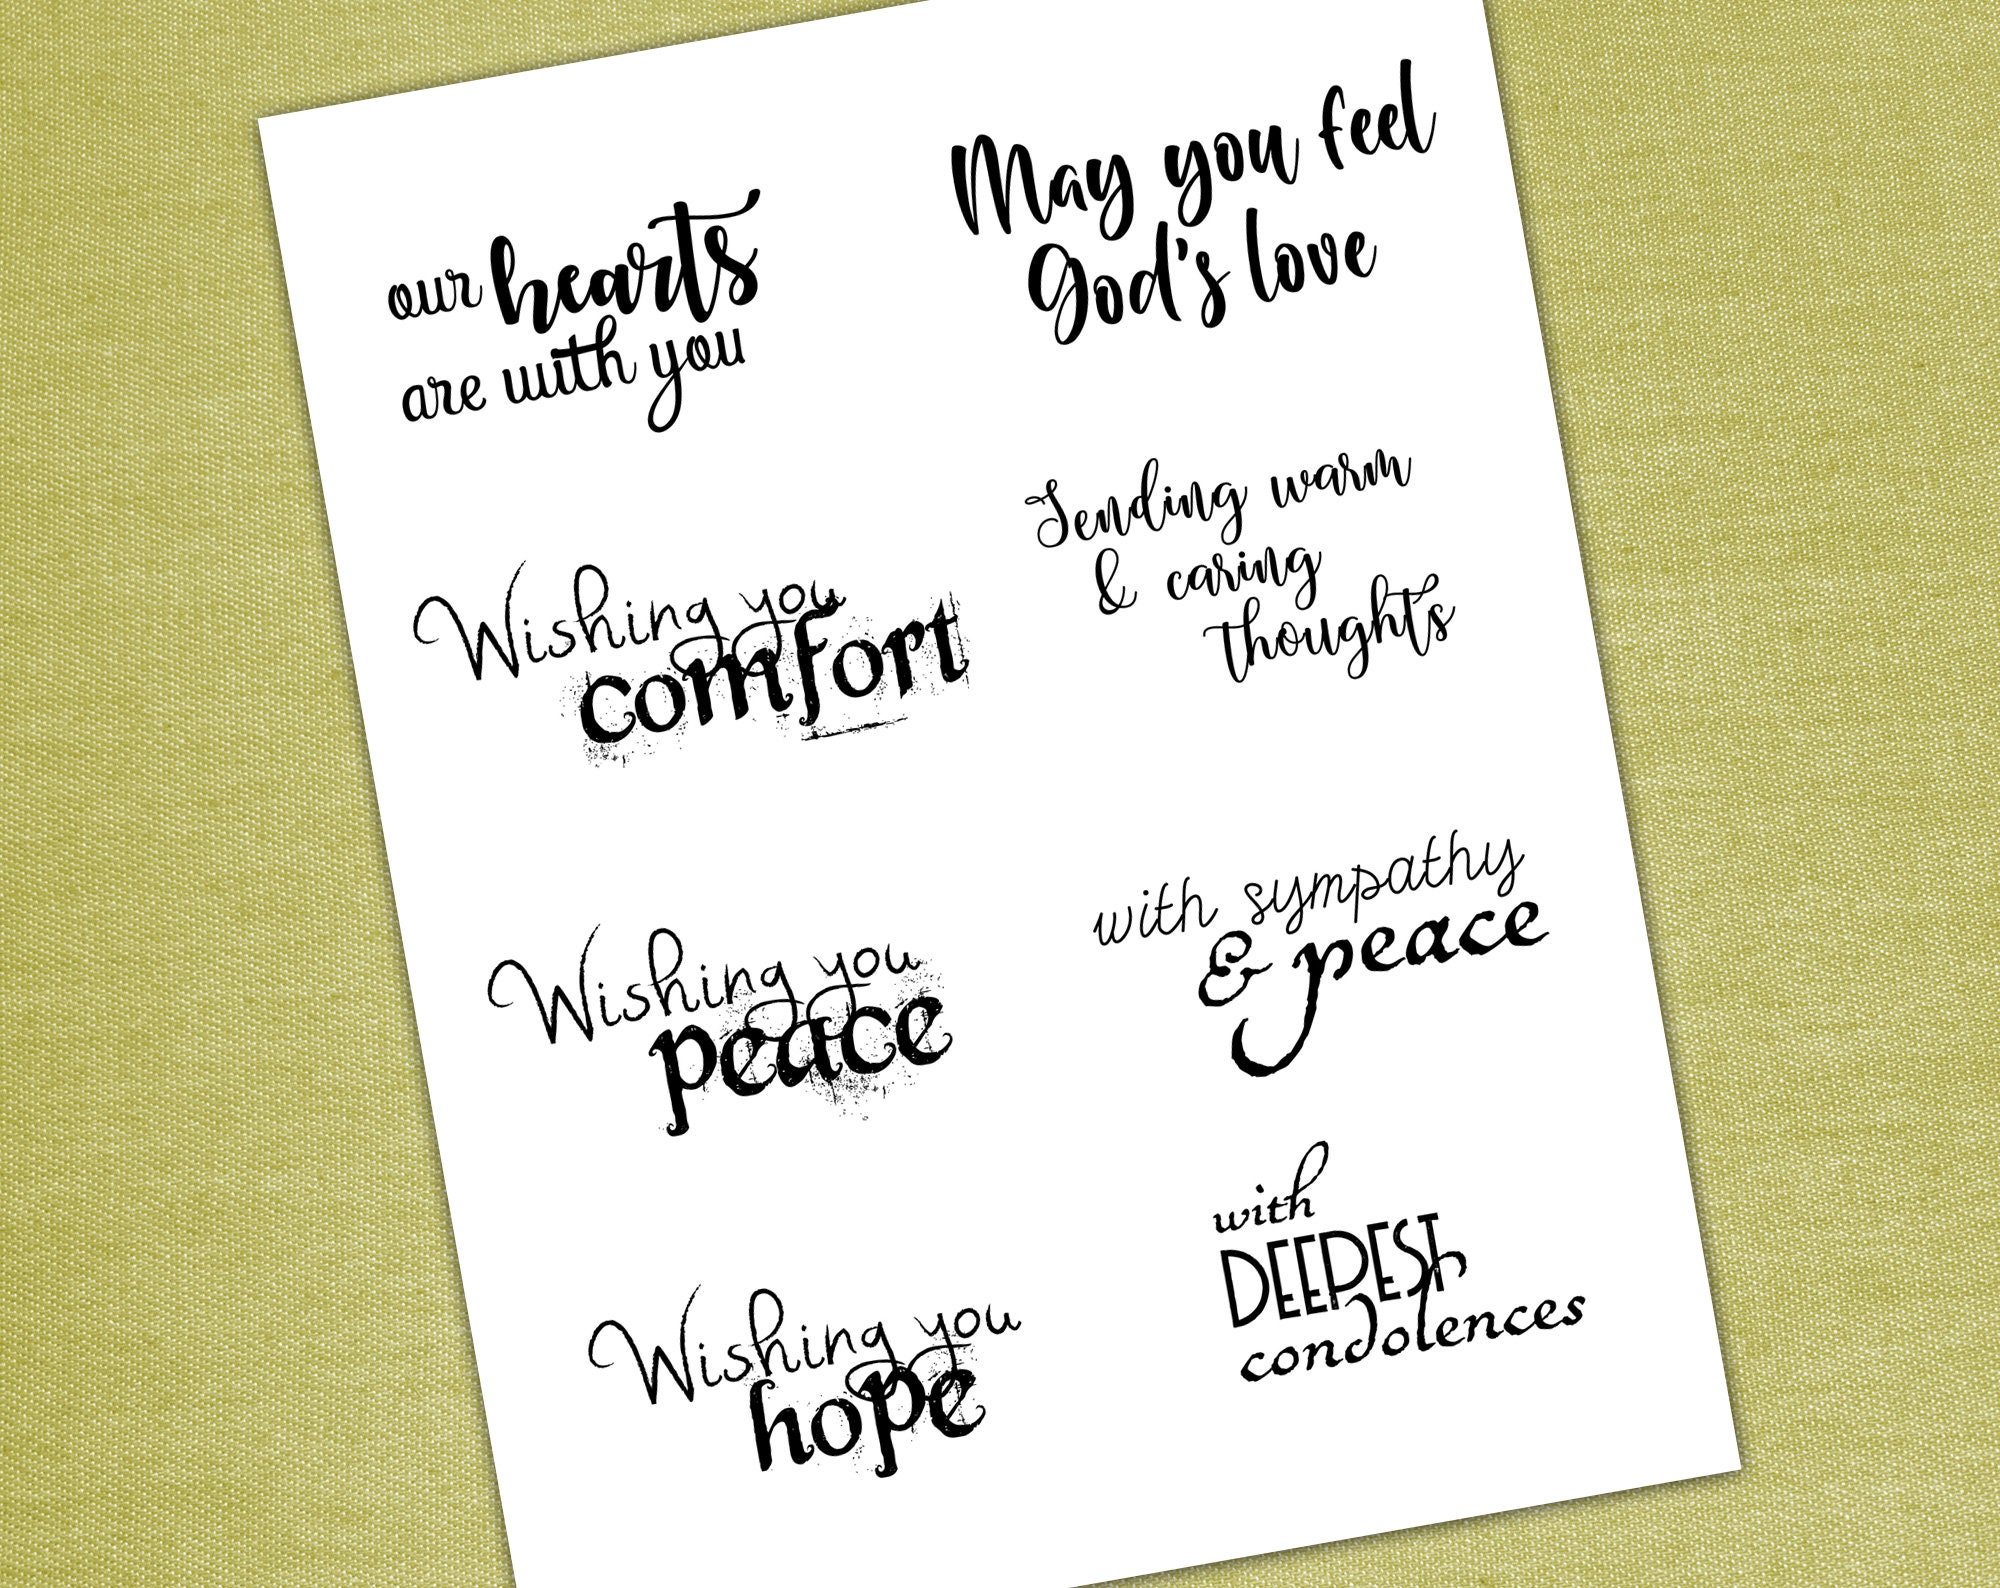 our hearts
are with you
May you feel
God's love
Wishing you
comfort
Sending warm
& caring
thoughts
Wishing you
peace
with sympathy
& peace
Wishing you
hope
with
DEEPEST
condolences